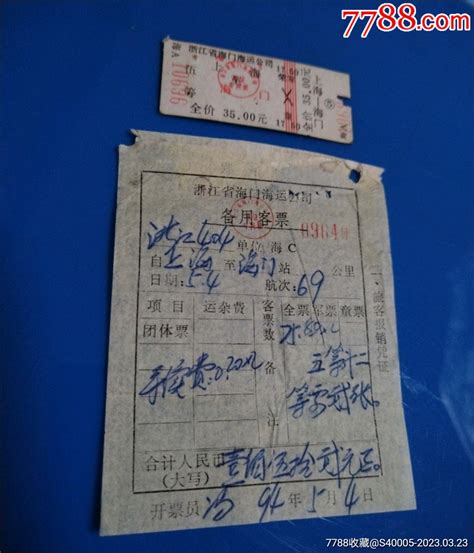 7788.com
浙江省海门海运公司
上海
伍 等
全价 35.00元
17 50
上海—海门
全价 35.00元
海A 10636
浙江省海门海运公司
备用客票
浙江404 单位海C
自上海至海门站 公里
日期:5.4 航次:69
项目 运杂费 客票数 全票 军票 童票
团体票
手续费:0.20元 备注 五等十二
等零贰张
合计人民币
(大写) 壹佰伍拾贰元正。
开票员 冯 94年5月4日
一、旅客报销凭证
7788收藏@S40005-2023.03.23